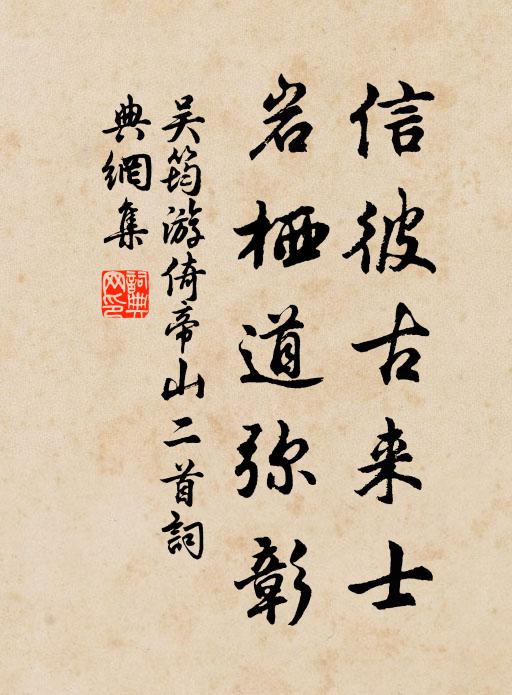 信彼古来士
岩栖道弥彰
吴筠游倚帝山二首詞
典網集
詞典网印